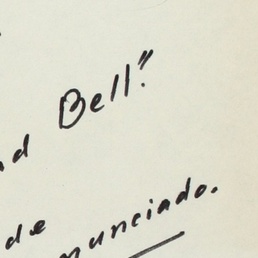 nd Bell."
de
nunciado.